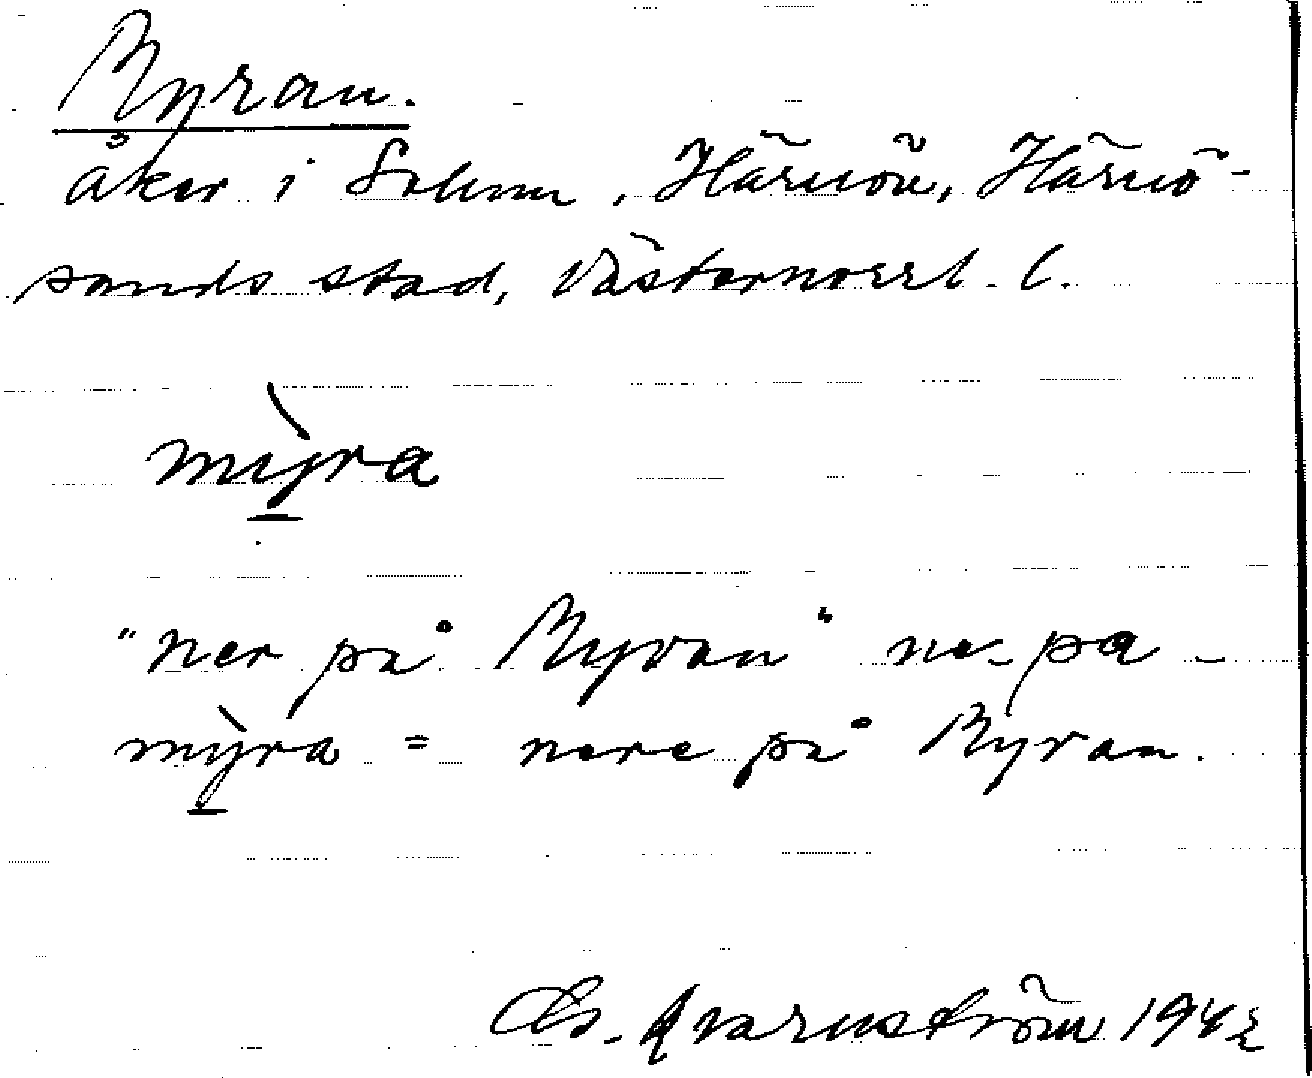 Myran.
åker i Solum, Härnön, Härnö-
sands stad, Västernorrl. l.
mỳra
"ner på Myran" ne- pa -
mỳra = nere på Myran.
Qvarnström 1942